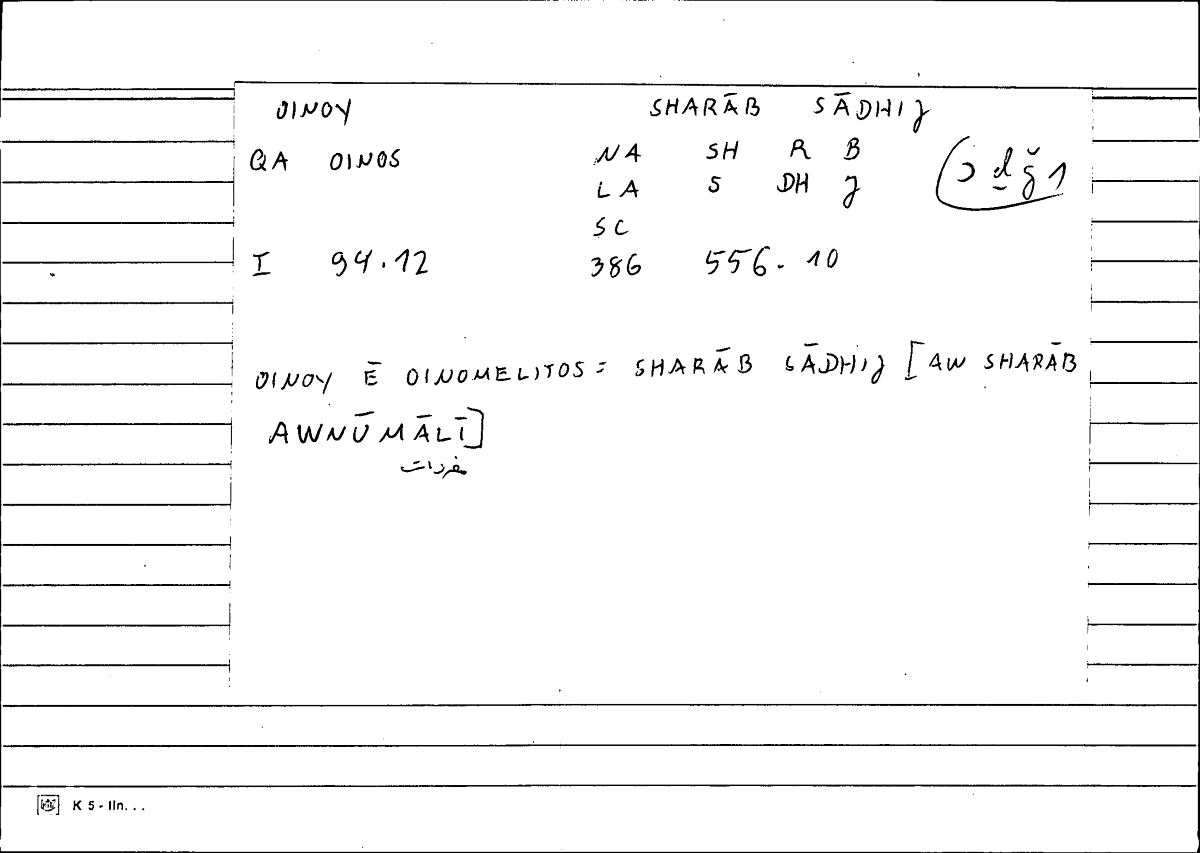 OINOY SHARĀB SĀDHIJ
QA OINOS NA SH R B
LA S DH J
SC
I 94.12 386 556.10
OINOY Ē OINOMELITOS = SHARĀB SĀDHIJ [AW SHARĀB
AWNŪMĀLĪ]
مفردات
K 5 - IIn...